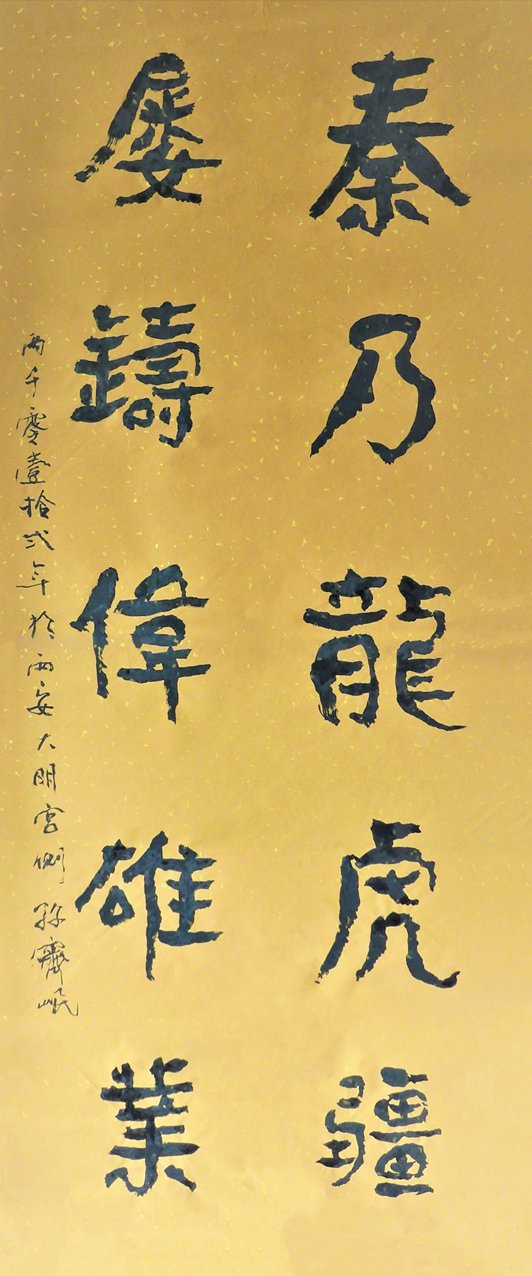 秦乃龍虎疆
屢鑄偉雄業
兩千零壹拾弍年於西安大明宮側孫霽岷